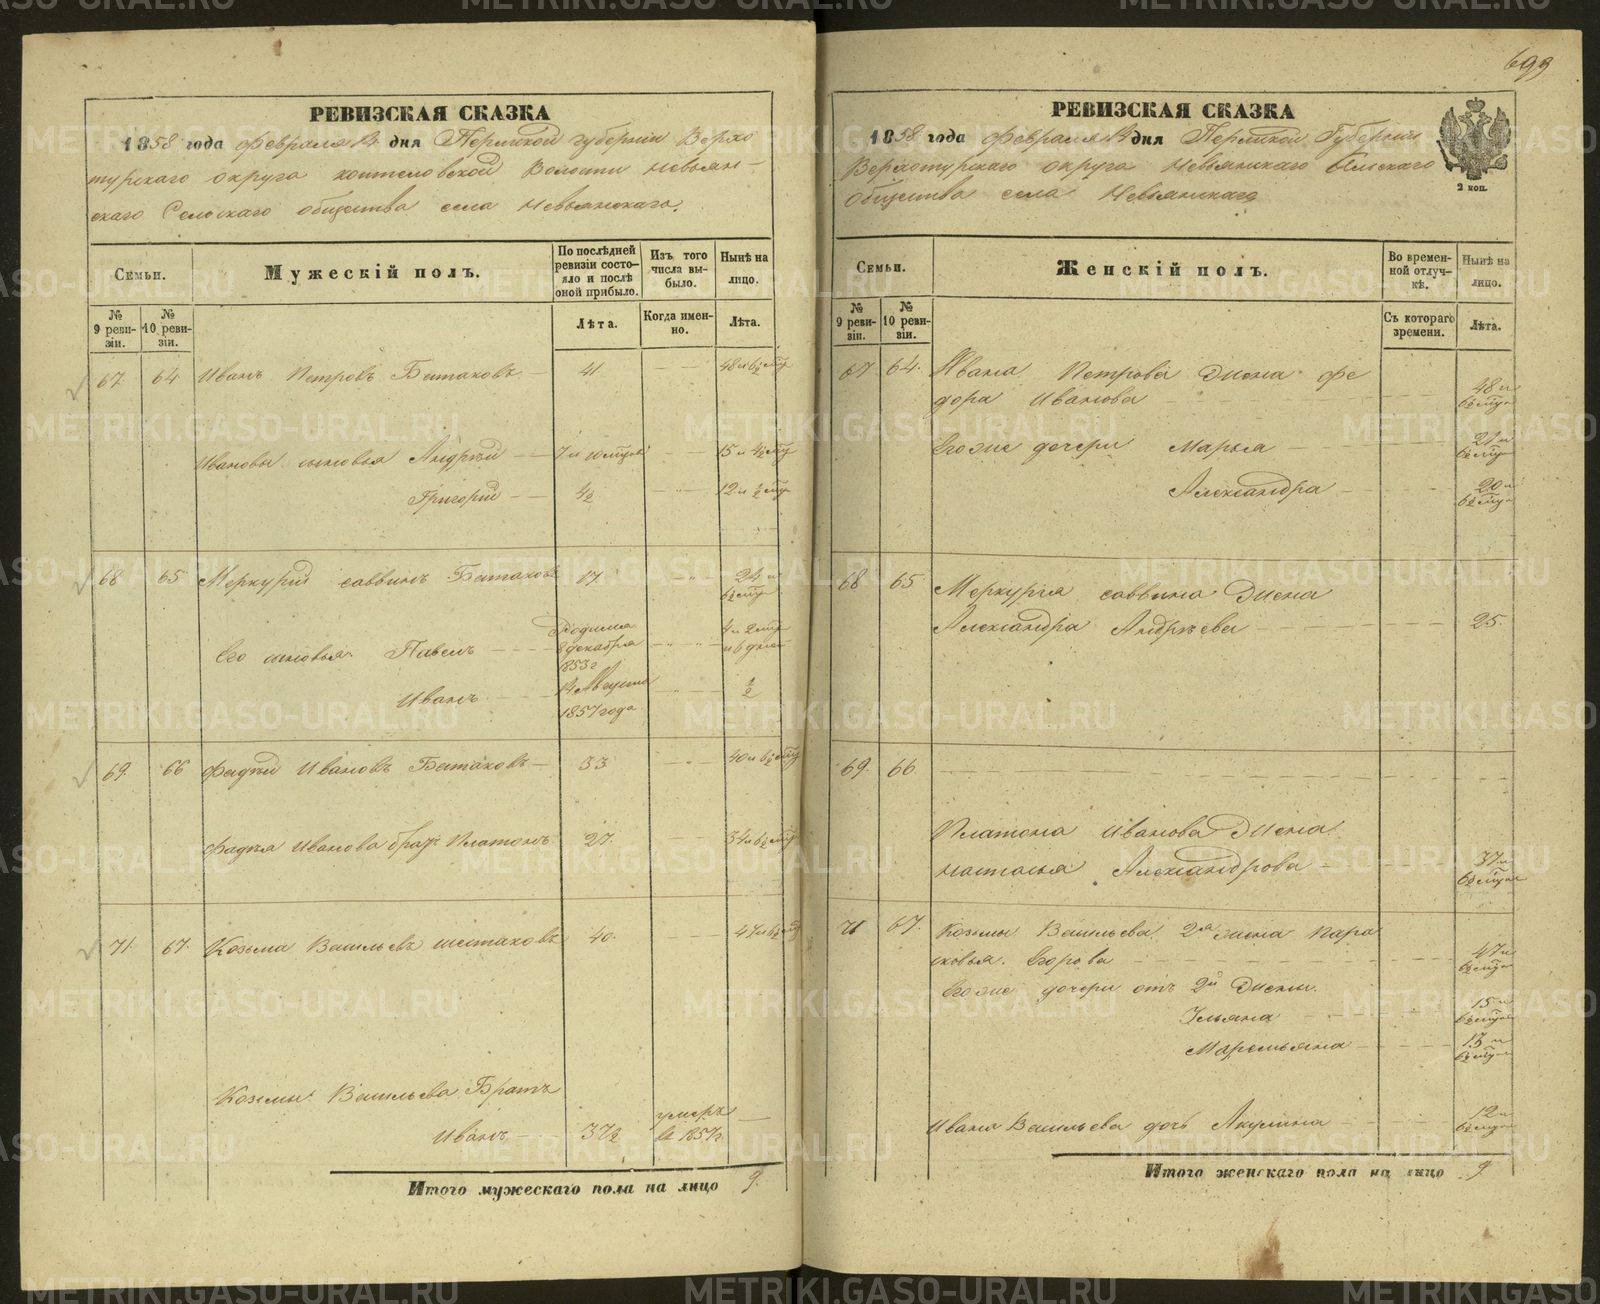 699
РЕВИЗСКАЯ СКАЗКА
1858 года февраля 14 дня Пермской губернии Верхо
турскаго округа Коптеловской Волости Невьян-
скаго Сельскаго общества села Невьянскаго.
Семьи.
Мужескій полъ.
По послѣдней ревизіи состо-яло и послѣ оной прибыло.
Изъ того числа вы-было.
Нынѣ на лицо.
№ 9 реви-зіи.
№ 10 реви-зіи.
Лѣта.
Когда имен-но.
Лѣта.
67. 64 Иванъ Петровъ Батаковъ 41 48 и 6½ мцъ
Ивановы сыновья Андрѣй 7 и 10 мцов 15 и 4½ мцъ
Григорій 4½ 12 и ½ мцъ
68 65 Меркурій саввинъ Батаковъ 17. 24 и 6½ мцъ
Его сыновья Павелъ Родился 8 декабря 1853 г 4 и 2 мцъ и 6 дней
Иванъ 14 Августа 1857 года ½
69. 66 Фадѣй Ивановъ Батаковъ 33 40 и 6½ мцъ
Фадѣя Иванова братъ Платонъ 27. 34 и 6½ мцъ
71. 67. Козьма Васильевъ Шестаковъ 40. 47 и 6½ мцъ
Козьмы Васильева Братъ
Иванъ 37½ умеръ въ 1857 г.
Итого мужескаго пола на лицо 9.
РЕВИЗСКАЯ СКАЗКА
1858 года февраля 14 дня Пермской Губерніи
Верхотурскаго округа Невьянскаго Сельскаго
Общества села Невьянскаго
2 коп.
Семьи.
Женскій полъ.
Во времен-ной отлуч-кѣ.
Нынѣ на лицо.
№ 9 реви-зіи.
№ 10 реви-зіи.
Съ котораго времени.
Лѣта.
67 64. Ивана Петрова Жена Фе
дора Иванова 48 и 6½ мцъ
Егоже дочери Марья 21 и 6½ мцъ
Александра 20 и 6½ мцъ
68 65 Меркурія саввина Жена
Александра Андрѣева 25.
69. 66.
Платона Иванова Жена
Наталья Александрова 37 и 6½ мцъ
71 67. Козьмы Васильева 2я жена Пара
сковья Егорова 47 и 6½ мцъ
Егоже дочери отъ 2й Жены.
Ульяна 15 и 6½ мцъ
Маремьяна 13 и 6½ мцъ
Ивана Васильева дочь Акулина 12 и 6½ мцъ
Итого женскаго пола на лицо 9
METRIKI.GASO-URAL.RU